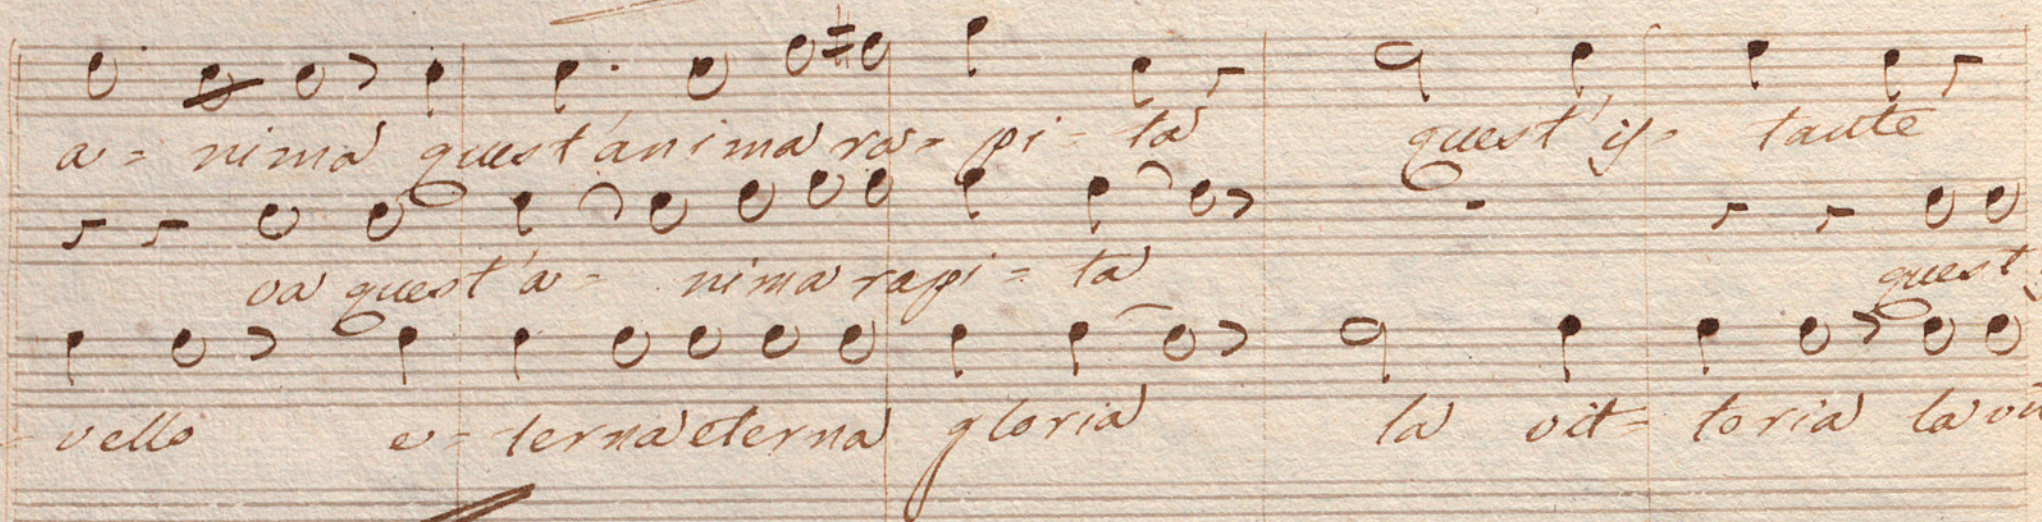 a= nima quest'anima ra= pi= ta quest'is= tante
va quest'a= nima rapi= ta quest'
vello e= terna eterna gloria la vit= toria la vi